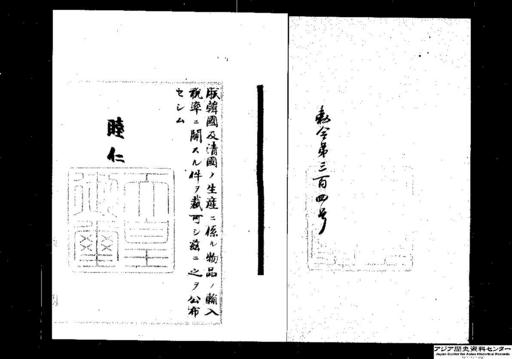 勅令第三百四号
朕韓國及清國ノ生産ニ係ル物品ノ輸入
税率ニ関スル件ヲ裁可シ茲ニ之ヲ公布
セシム
睦仁
天皇
御璽
アジア歴史資料センター
Japan Center for Asian Historical Records